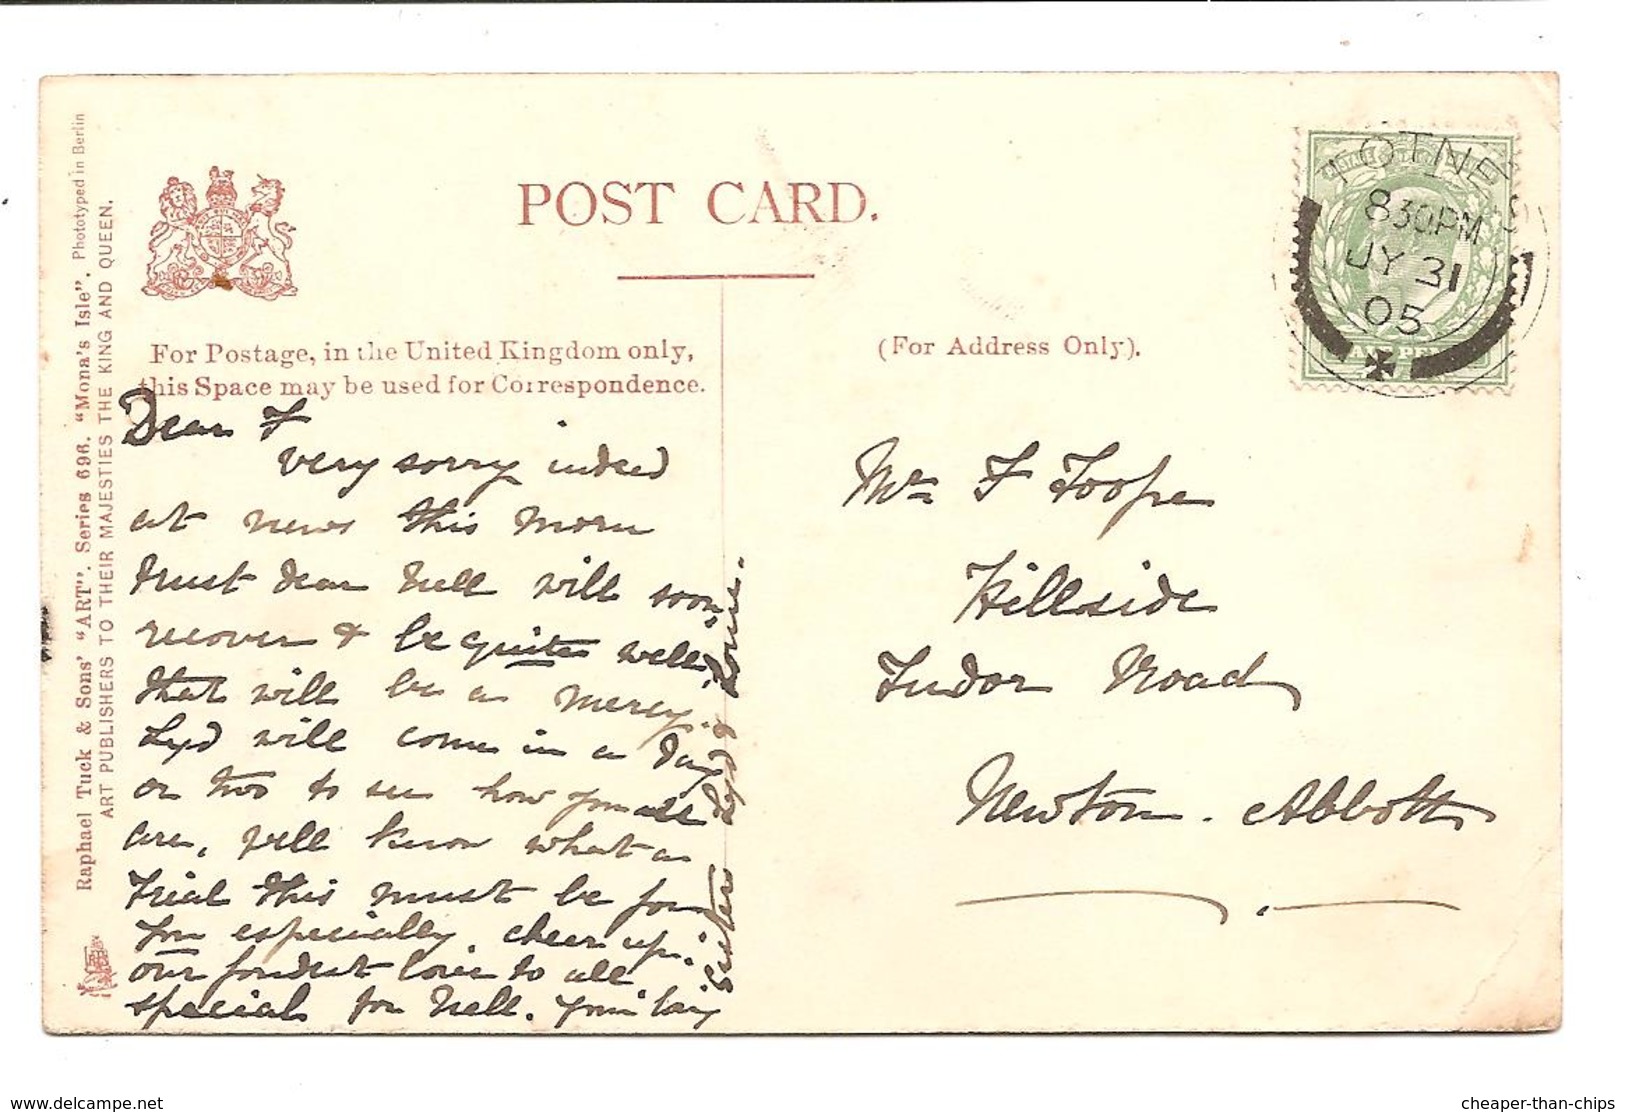 POST CARD.
For Postage, in the United Kingdom only,
this Space may be used for Correspondence.
(For Address Only).
Raphael Tuck & Sons' "ART". Series 696. "Mona's Isle". Phototyped in Berlin
ART PUBLISHERS TO THEIR MAJESTIES THE KING AND QUEEN.
TOTNES
8 30PM
JY 31
05
Dear F
very sorry indeed
at news this morn
trust dear Nell will soon
recover & be quite well
that will be a mercy.
Lyd will come in a day
or two to see how you all
are, well know what a
trial this must be for
you especially, cheer up!
our fondest love to all
special for Nell. Your lovg
sisters Lyd & Louie.
Mr F Toope
Hillside
Tudor Road
Newton. Abbott
www.delcampe.net
cheaper-than-chips